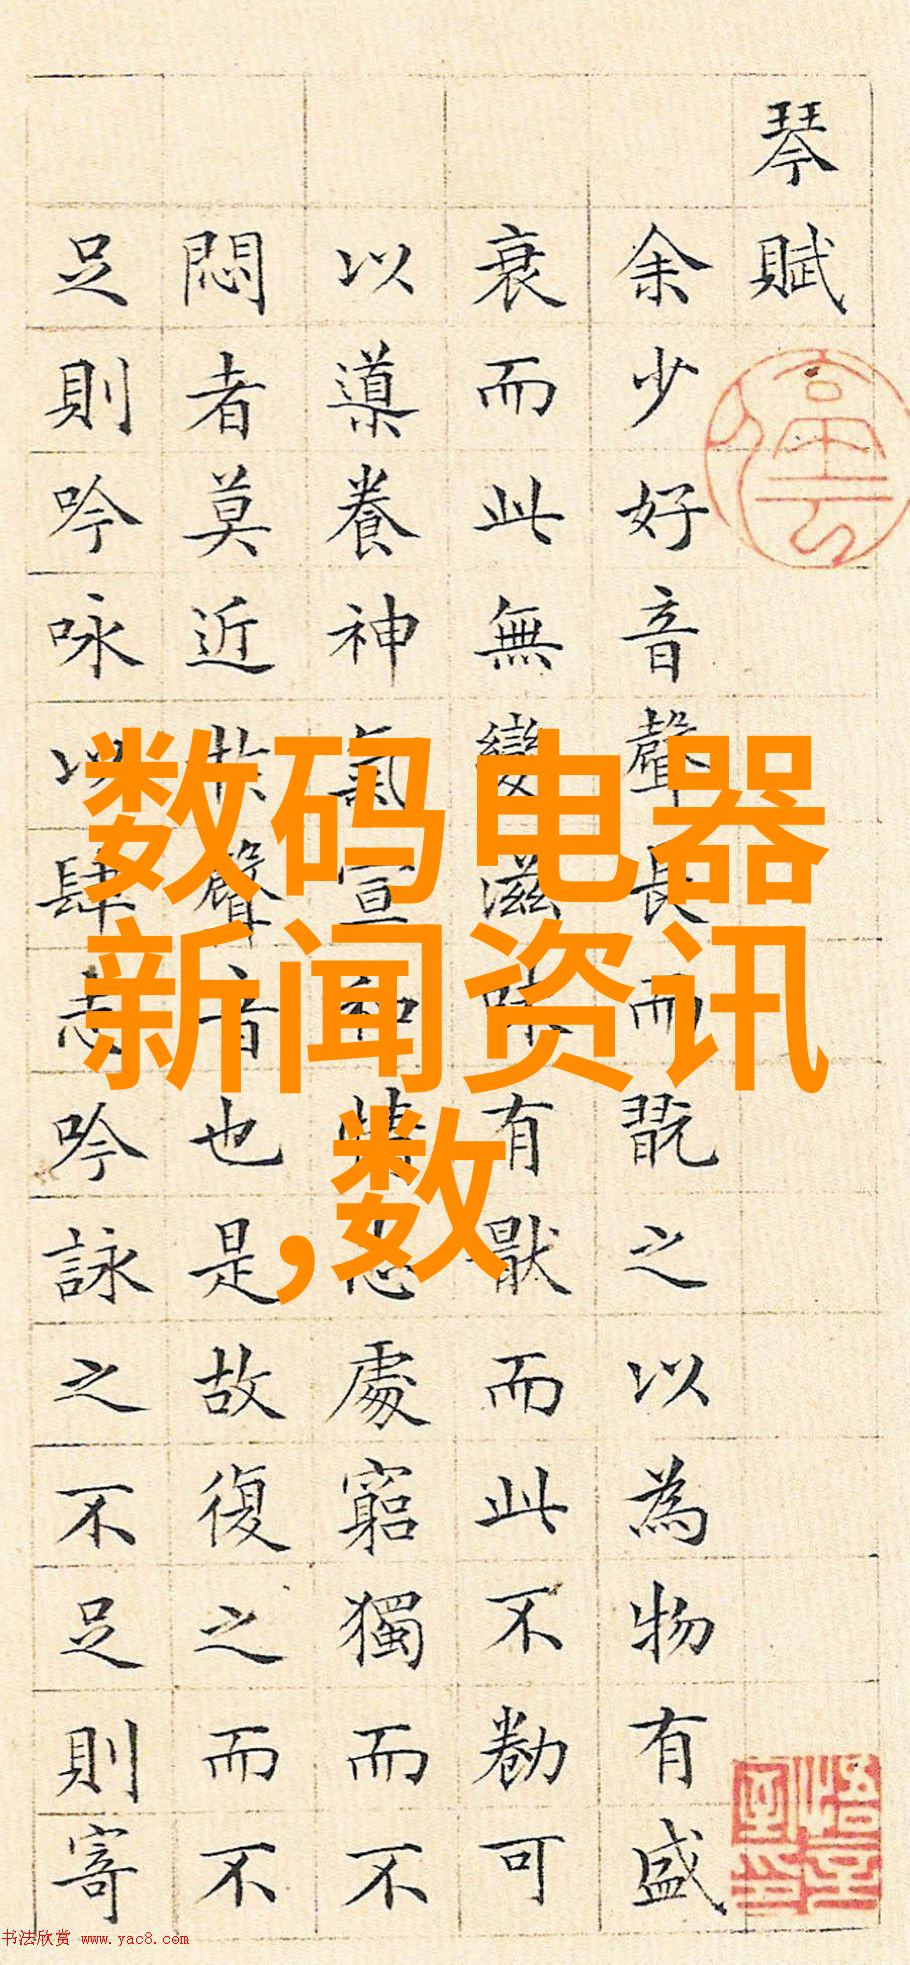 琴賦
停雲
余少好音聲長而翫之以為物有盛
衰而此無變滋味有猒而此不勌可
以導養神氣宣和情志處窮獨而不
悶者莫近扵聲音也是故復之而不
足則吟咏以肆志吟詠之不足則寄
悟言室印
数码电器
新闻资讯
,数
书法欣赏 www.yac8.com